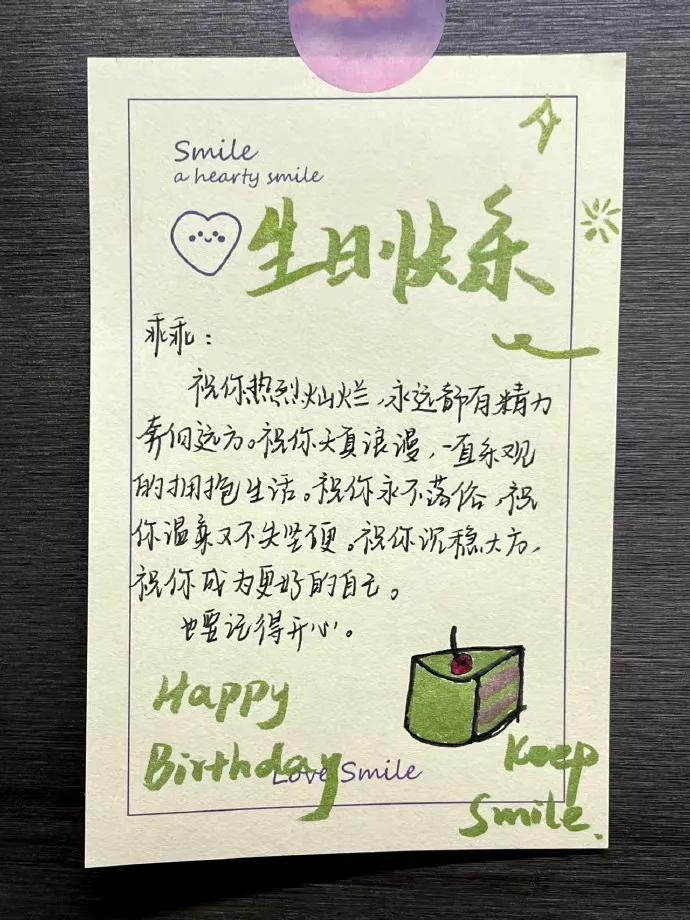 Smile
a hearty smile
生日快乐
乖乖：
祝你热烈灿烂，永远都有精力
奔向远方。祝你天真浪漫，一直乐观
的拥抱生活。祝你永不落俗，祝
你温柔又不失坚硬。祝你沉稳大方，
祝你成为更好的自己。
也要记得开心。
Happy
Birthday
Love Smile
Keep
Smile.